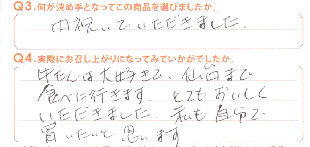 Q3.何が決め手となってこの商品を選びましたか。
内祝いでいただきました。
Q4.実際にお召し上がりになってみていかがでしたか。
牛たんは大好きで、仙台まで
食べに行きます。とてもおいしく
いただきました。私も自分で
買いたいと思います